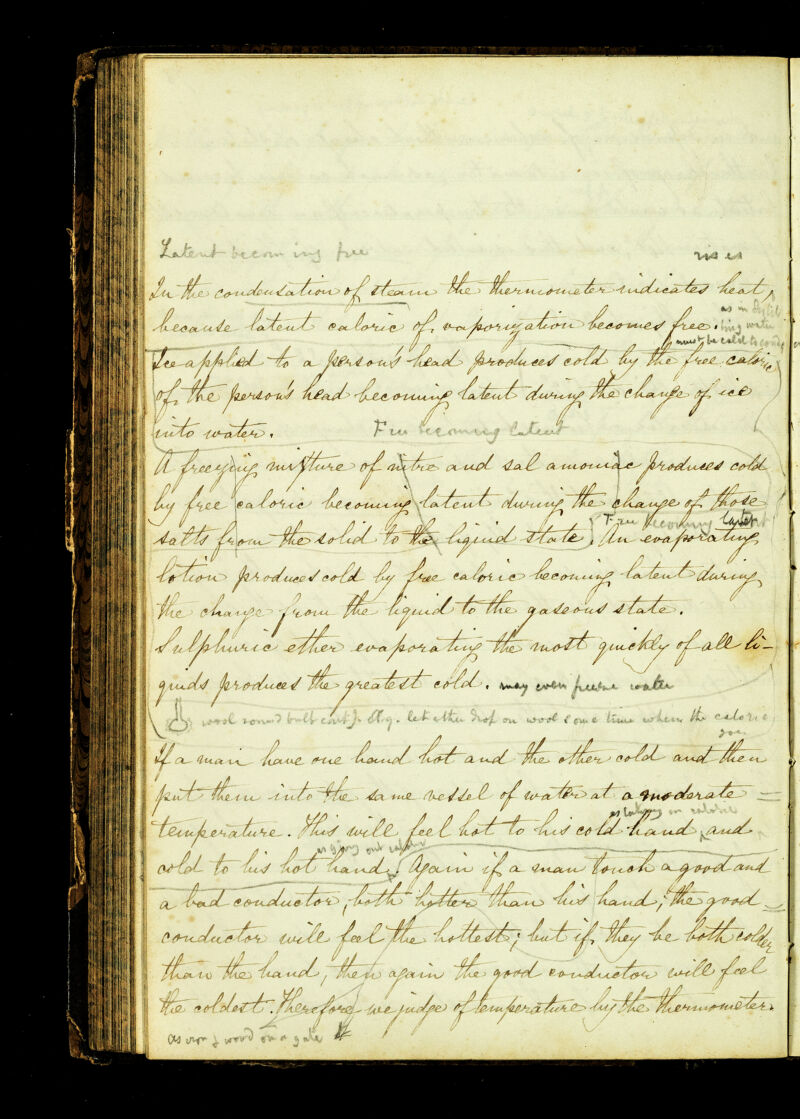 Latent becoming free
rises
In the condensation of steam the thermometer indicates heat
because latent caloric of vaporization becomes free.
as in distil
ling water
must be cold to cond
Ice applied to a person's head produces cold by the free caloric
of the person's head becoming latent during the change of ice
into water.
Free becoming latent
A freezing mixture of nitre and sal amoniac produces cold
by free caloric becoming latent during the change of those
salts from the solid to the liquid state. An evaporating
Free becoming latent
lotion produces cold by free caloric becoming latent during
the change from the liquid to the gaseous state.
Sulphuric ether evaporating the most quickly of all li-
quids produces the greatest cold. may even freeze water
wool round bulb let ether drop on wool some time when the caloric
goes
If a man have one hand hot and the other cold and then
put them into the same vessel of water at a moderate
temperature. This will feel hot to his cold hand, and
as taking in caloric
as giving out caloric
cold to his hot hand. Again if a man touch a good and
a bad conductor, both hotter than his hand, the good
conductor will feel the hottest; but if they be both colder
than the hand, then again the good conductor will feel
the coldest. Therefore we judge of temperature by the thermometer.
as iron & wood on a gate